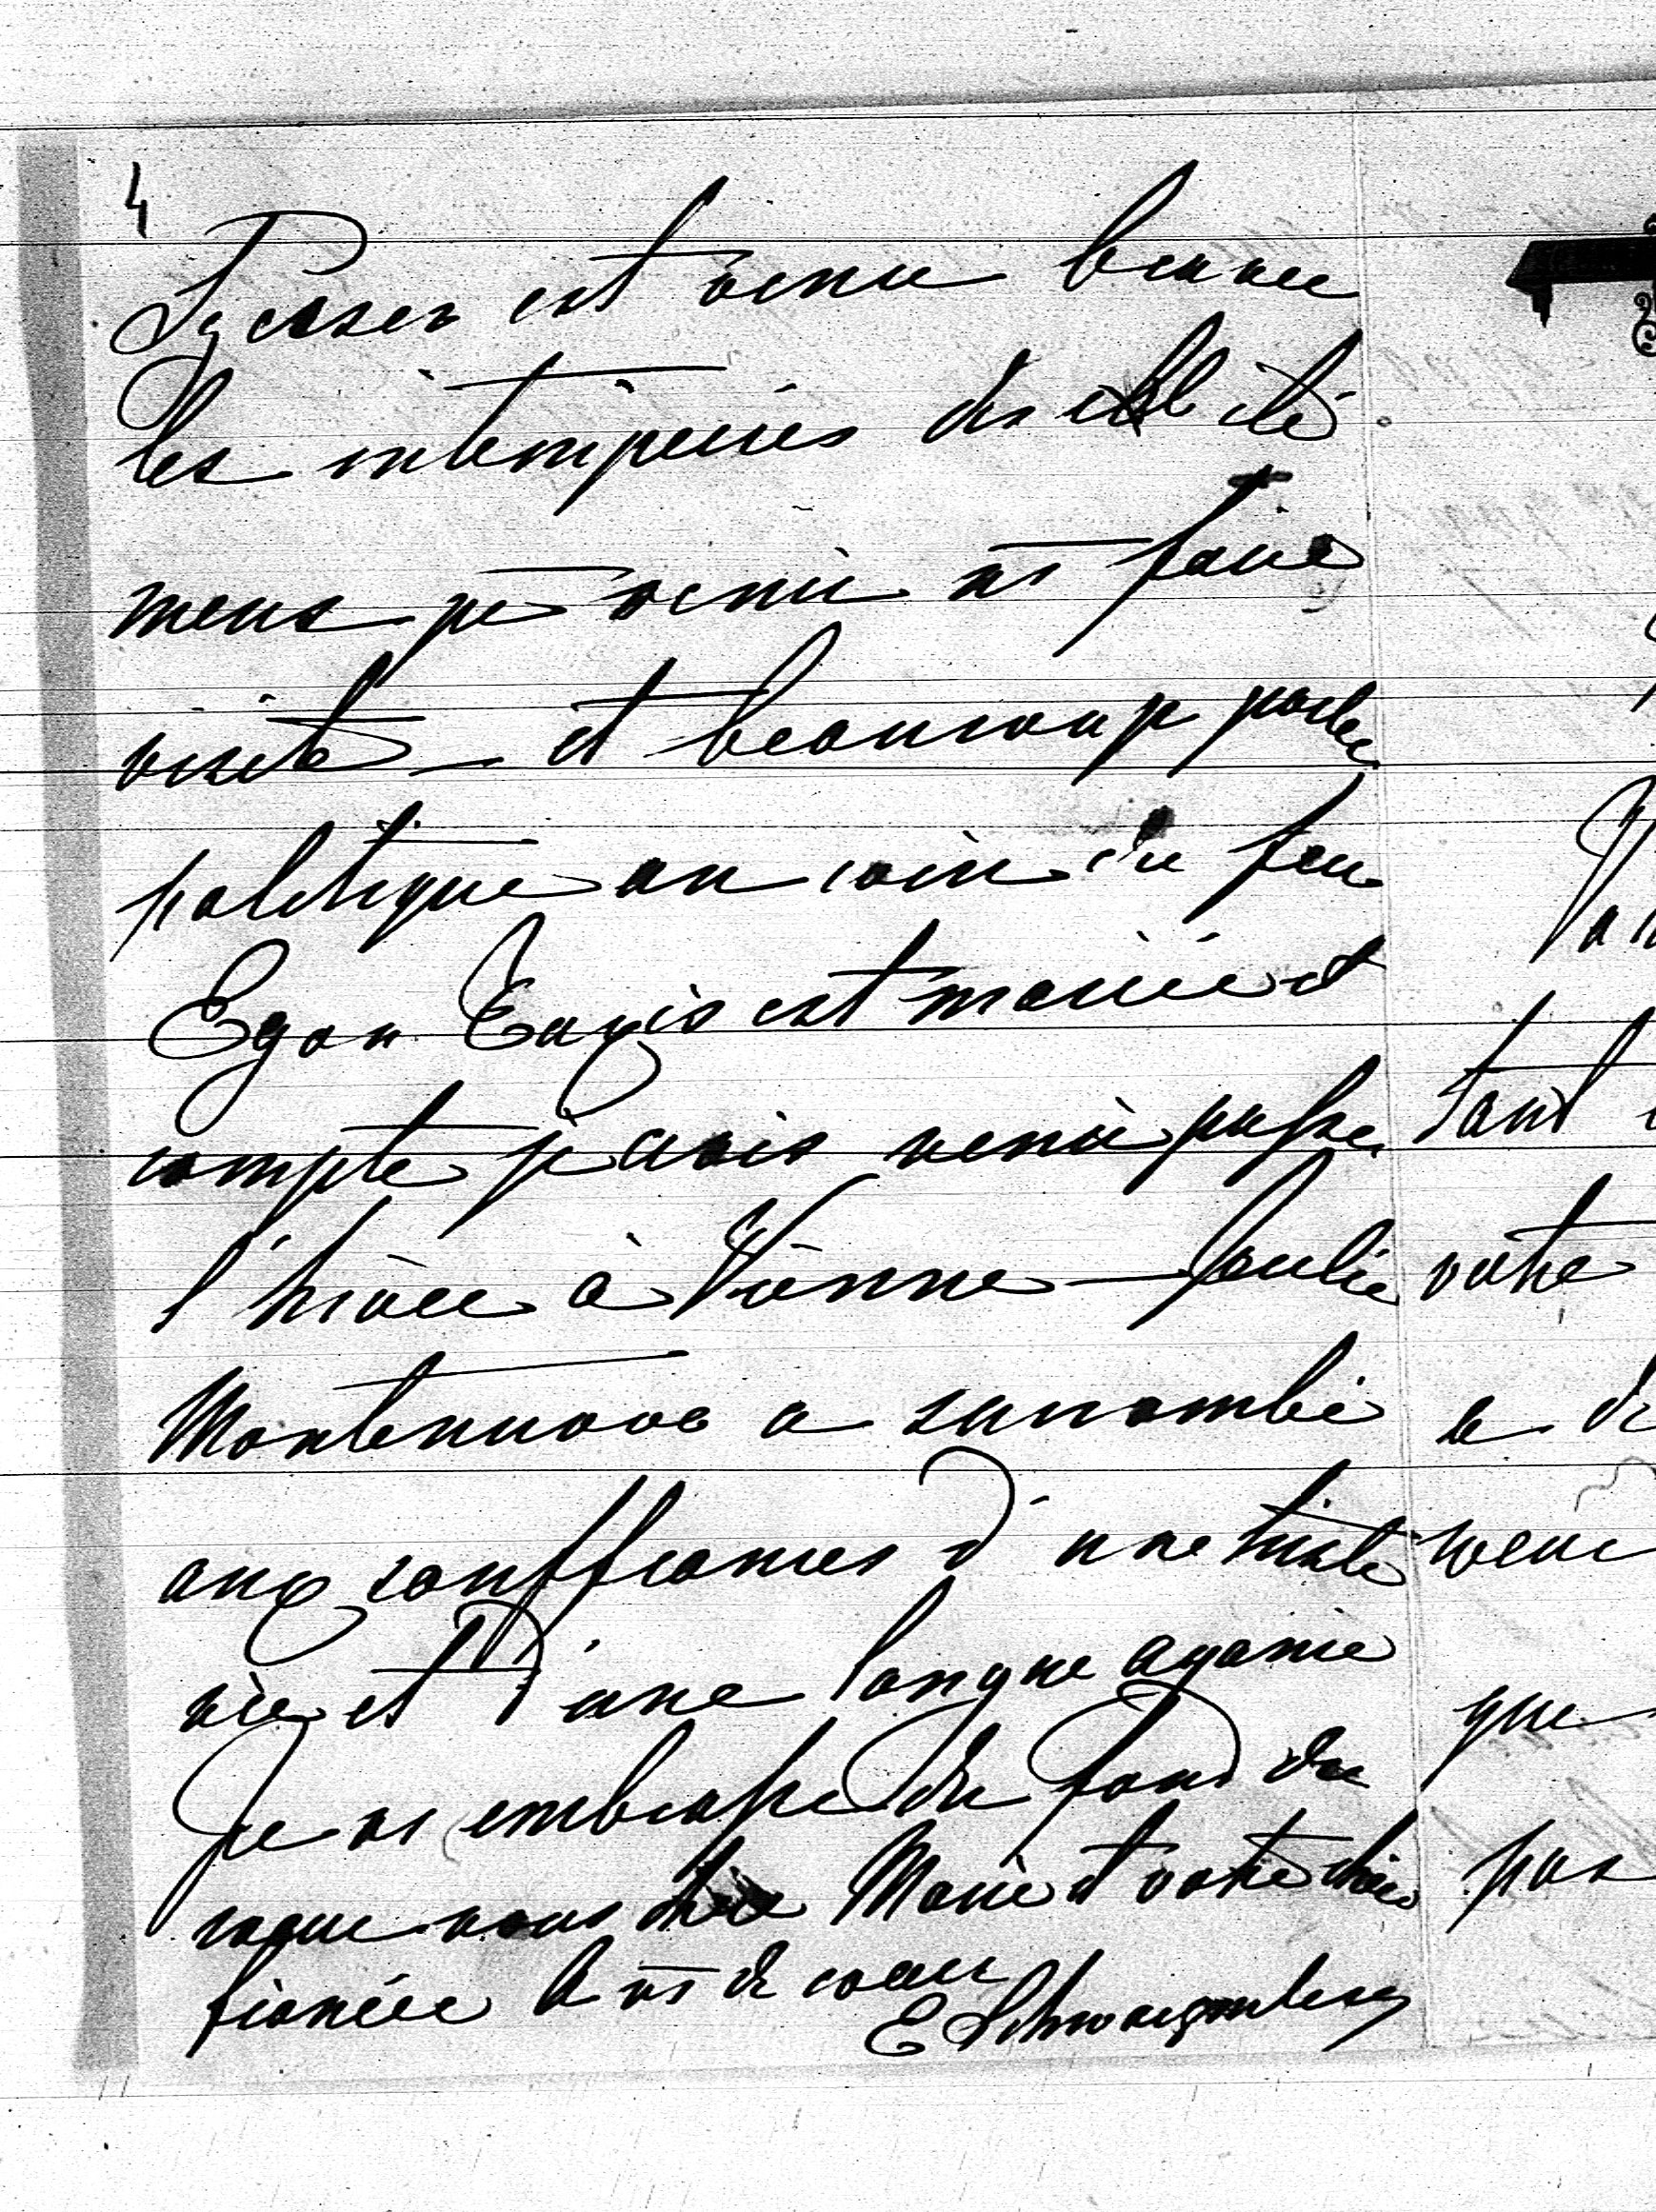 4
est venu braver
les intempéries de cet été
venir vs faire
visite – et beaucoup parler
politique au coin du feu
Egon est marié et
compte venir passer
l'hiver à Vienne – Julie
Montenuovo a succombé
aux souffrances d'une triste
vie et d'une longue agonie
Je vs embrasse du fond du
coeur vous Marie et votre chère
fiancée à vs de coeur
E Schwarzenberg
tant
votre
a de
que
pas